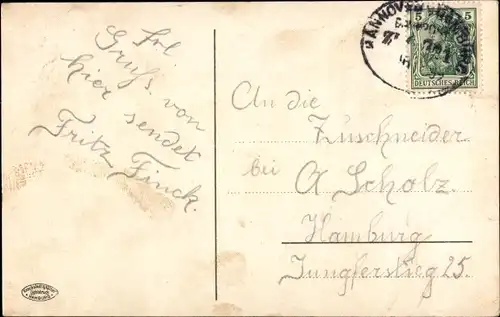 Frl.
Gruß von
hier sendet
Fritz Finck.
5 5
DEUTSCHES REICH
An die
Zuschneider
bei A Scholz.
Hamburg
Jungfernstieg 25.
HAMBURG